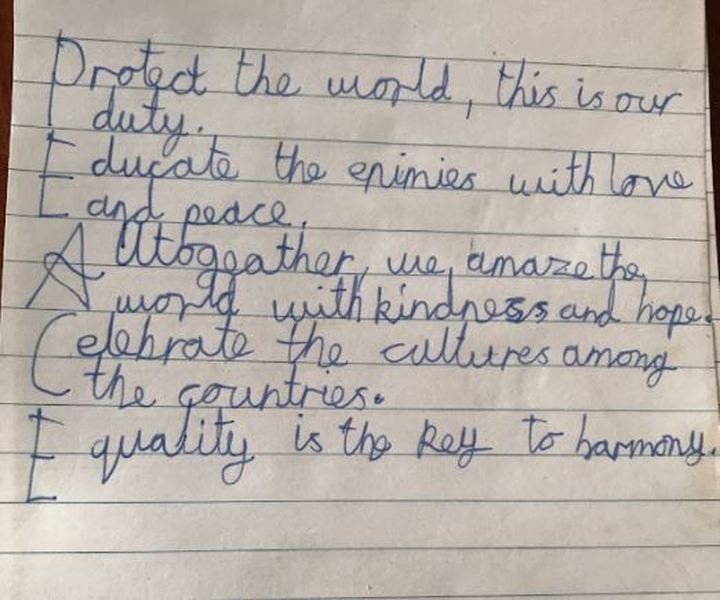 Protect the world, this is our
duty.
Educate the enimies with love
and peace.
Alltogeather, we, amaze the
world with kindness and hope.
Celebrate the cultures among
the countries.
Equality is the key to harmony.